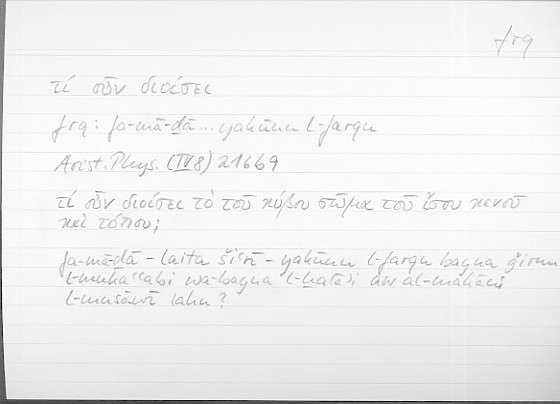 frq
τί οὖν διοίσει
frq: fa-mā-ḏā... yakūnu l-farqu
Arist. Phys. (IV 8) 216b9
τί οὖν διοίσει τὸ τοῦ κύβου σῶμα τοῦ ἴσου κενοῦ
καὶ τόπου;
fa-mā-ḏā – laita šiʿrī – yakūnu l-farqu bayna ǧirmi
l-mukaʿʿabi wa-bayna l-ḫalāʾi aw al-makāni
l-musāwī lahu?